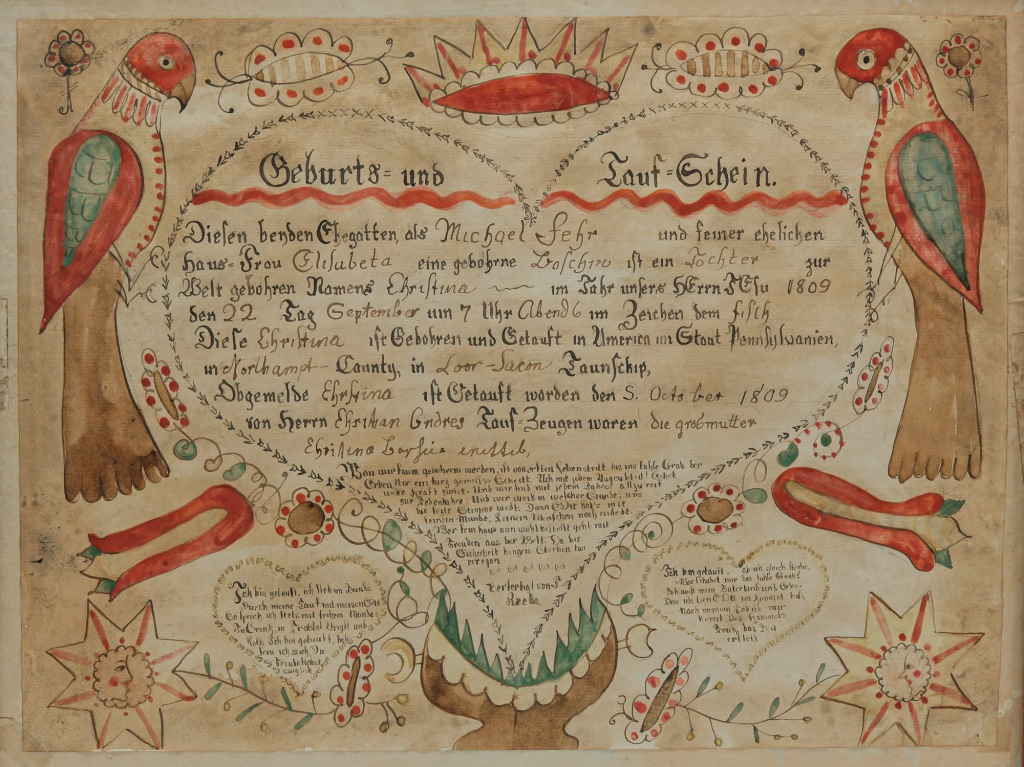 Geburts= und Tauf=Schein.
Diesen beyden Ehegatten, als Michael Fehr und seiner ehelichen
Haus=Frau Elisabeta eine gebohrne Loschin ist ein Tochter zur
Welt gebohren Namens Christina im Jahr unsers HErrn JEsu 1809
den 22 Tag September um 7 Uhr Abends im Zeichen dem fisch
Diese Christina ist Gebohren und Getauft in America im Staat Pennsylvanien,
in Northampt- County, in Loor-Sacon Taunschip,
Obgemelde Christina ist Getauft worden den 8. October 1809
von Herrn Christian Endres Tauf=Zeugen waren die grosmutter
Christina
Wan wir kaum gebohren werden, ist vom ersten Lebenstritt bis ins kühle Grab der
Erden Nur ein kurz gemessner Schritt Ach mit jedem Augenblick! Gehet
unsre Kraft zurück, Und wir sind mit jedem Jahre Allzu reif
zur Todenbahre! Und wer weis in welcher Stunde, uns
die lezte Stimme wekt, Dann GOtt hats mit
seinem Munde, Keinem Menschen noch endekt
Wer sein haus nun wohl bestelt geht mit
Freuden aus der Welt. Da die
Sicherheit hingen Sterben kan
erregen
Verfertigt von
Krebs
Ich bin getauft, ich steh im Bunde
Durch meine Tauf mit meinem GOtt
So sprech ich stets mit frohem Munde
In Creutz, in Trübsal Angst und
Noth Ich bin getauft, des
freu ich mich Die
Freude bleibet
ewiglich
Ich bin getauft, ob ich gleich sterbe,
Was schadet mir das kühle Grab?
Ich weis mein Vaterland und Erbe
Das ich bey GOtt im Himmel hab,
Nach meinem Tod ist mir
bereit Des Himmels
Freud das